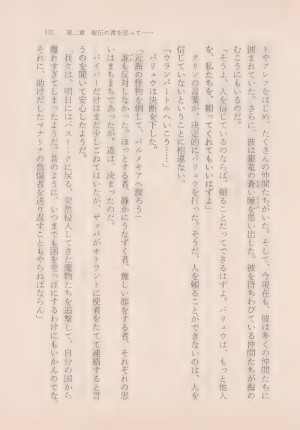 131　第二章　秘伝の書を追って……
トやアレフをはじめ、たくさんの仲間たちがいた。そして、今現在も、彼は多くの仲間たちに
囲まれていた。さらに、彼は霊竜の蒼い瞳を思い出した。彼を待ちわびている仲間たちが海の
むこうにもいるのだ。
「そうよ、人を信じているのならば、頼ることだってできるはずよ。バリュウは、もっと他人
を、私たちを、頼ってくれてもいいはずよ」
クリンの言葉が、決定的にバリュウを打った。そうだ、人を頼ることができないのは、人を
信じていないということに相違ない。
「ウランバートルへいこう……」
バリュウは決断を下した。
「近海の怪物を倒して、パルメキアへ渡ろう」
誰も反対しなかった。ほっとする者、静かにうなずく者、難しい顔をする者、それぞれの思
いはまちまちであったが、道は、決まったのだ。
パイパーだけはまだ少しごねてはいたが、ザッパがオトラントに使者をたてて連絡すると言
うのを聞いて安心したようだ。
「我々は、明日にはパストートに戻る。突然侵入してきた魔物たちを追撃して、自分の国から
離れすぎてしまったようだ。昔のように、いつまでも国を空っぽにするわけにもいかんのでな。
それに、助けだしたマナリナの負傷者を送り返すこともやらねばならん」